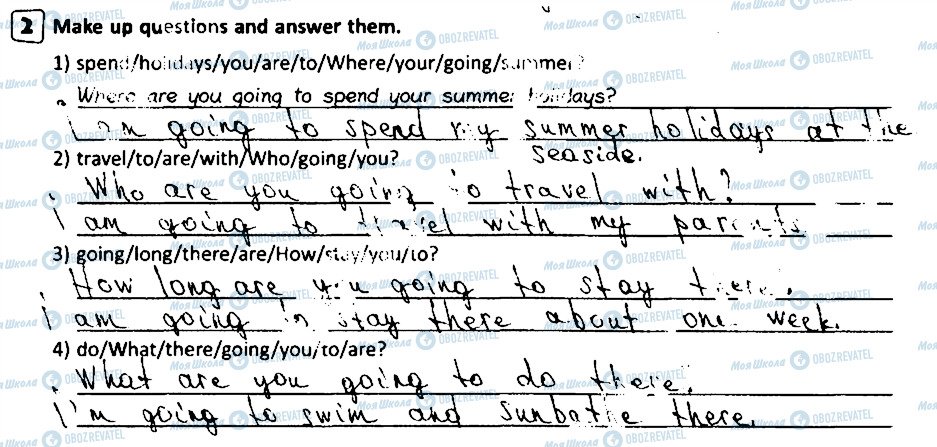 2 Make up questions and answer them.
1) spend/holidays/you/are/to/Where/your/going/summer?
Where are you going to spend your summer holidays?
I am going to spend my summer holidays at the
seaside.
2) travel/to/are/with/Who/going/you?
Who are you going to travel with?
I am going to travel with my parents
3) going/long/there/are/How/stay/you/to?
How long are you going to stay there.
I am going to stay there about one week.
4) do/What/there/going/you/to/are?
What are you going to do there.
I'm going to swim and sunbathe there.